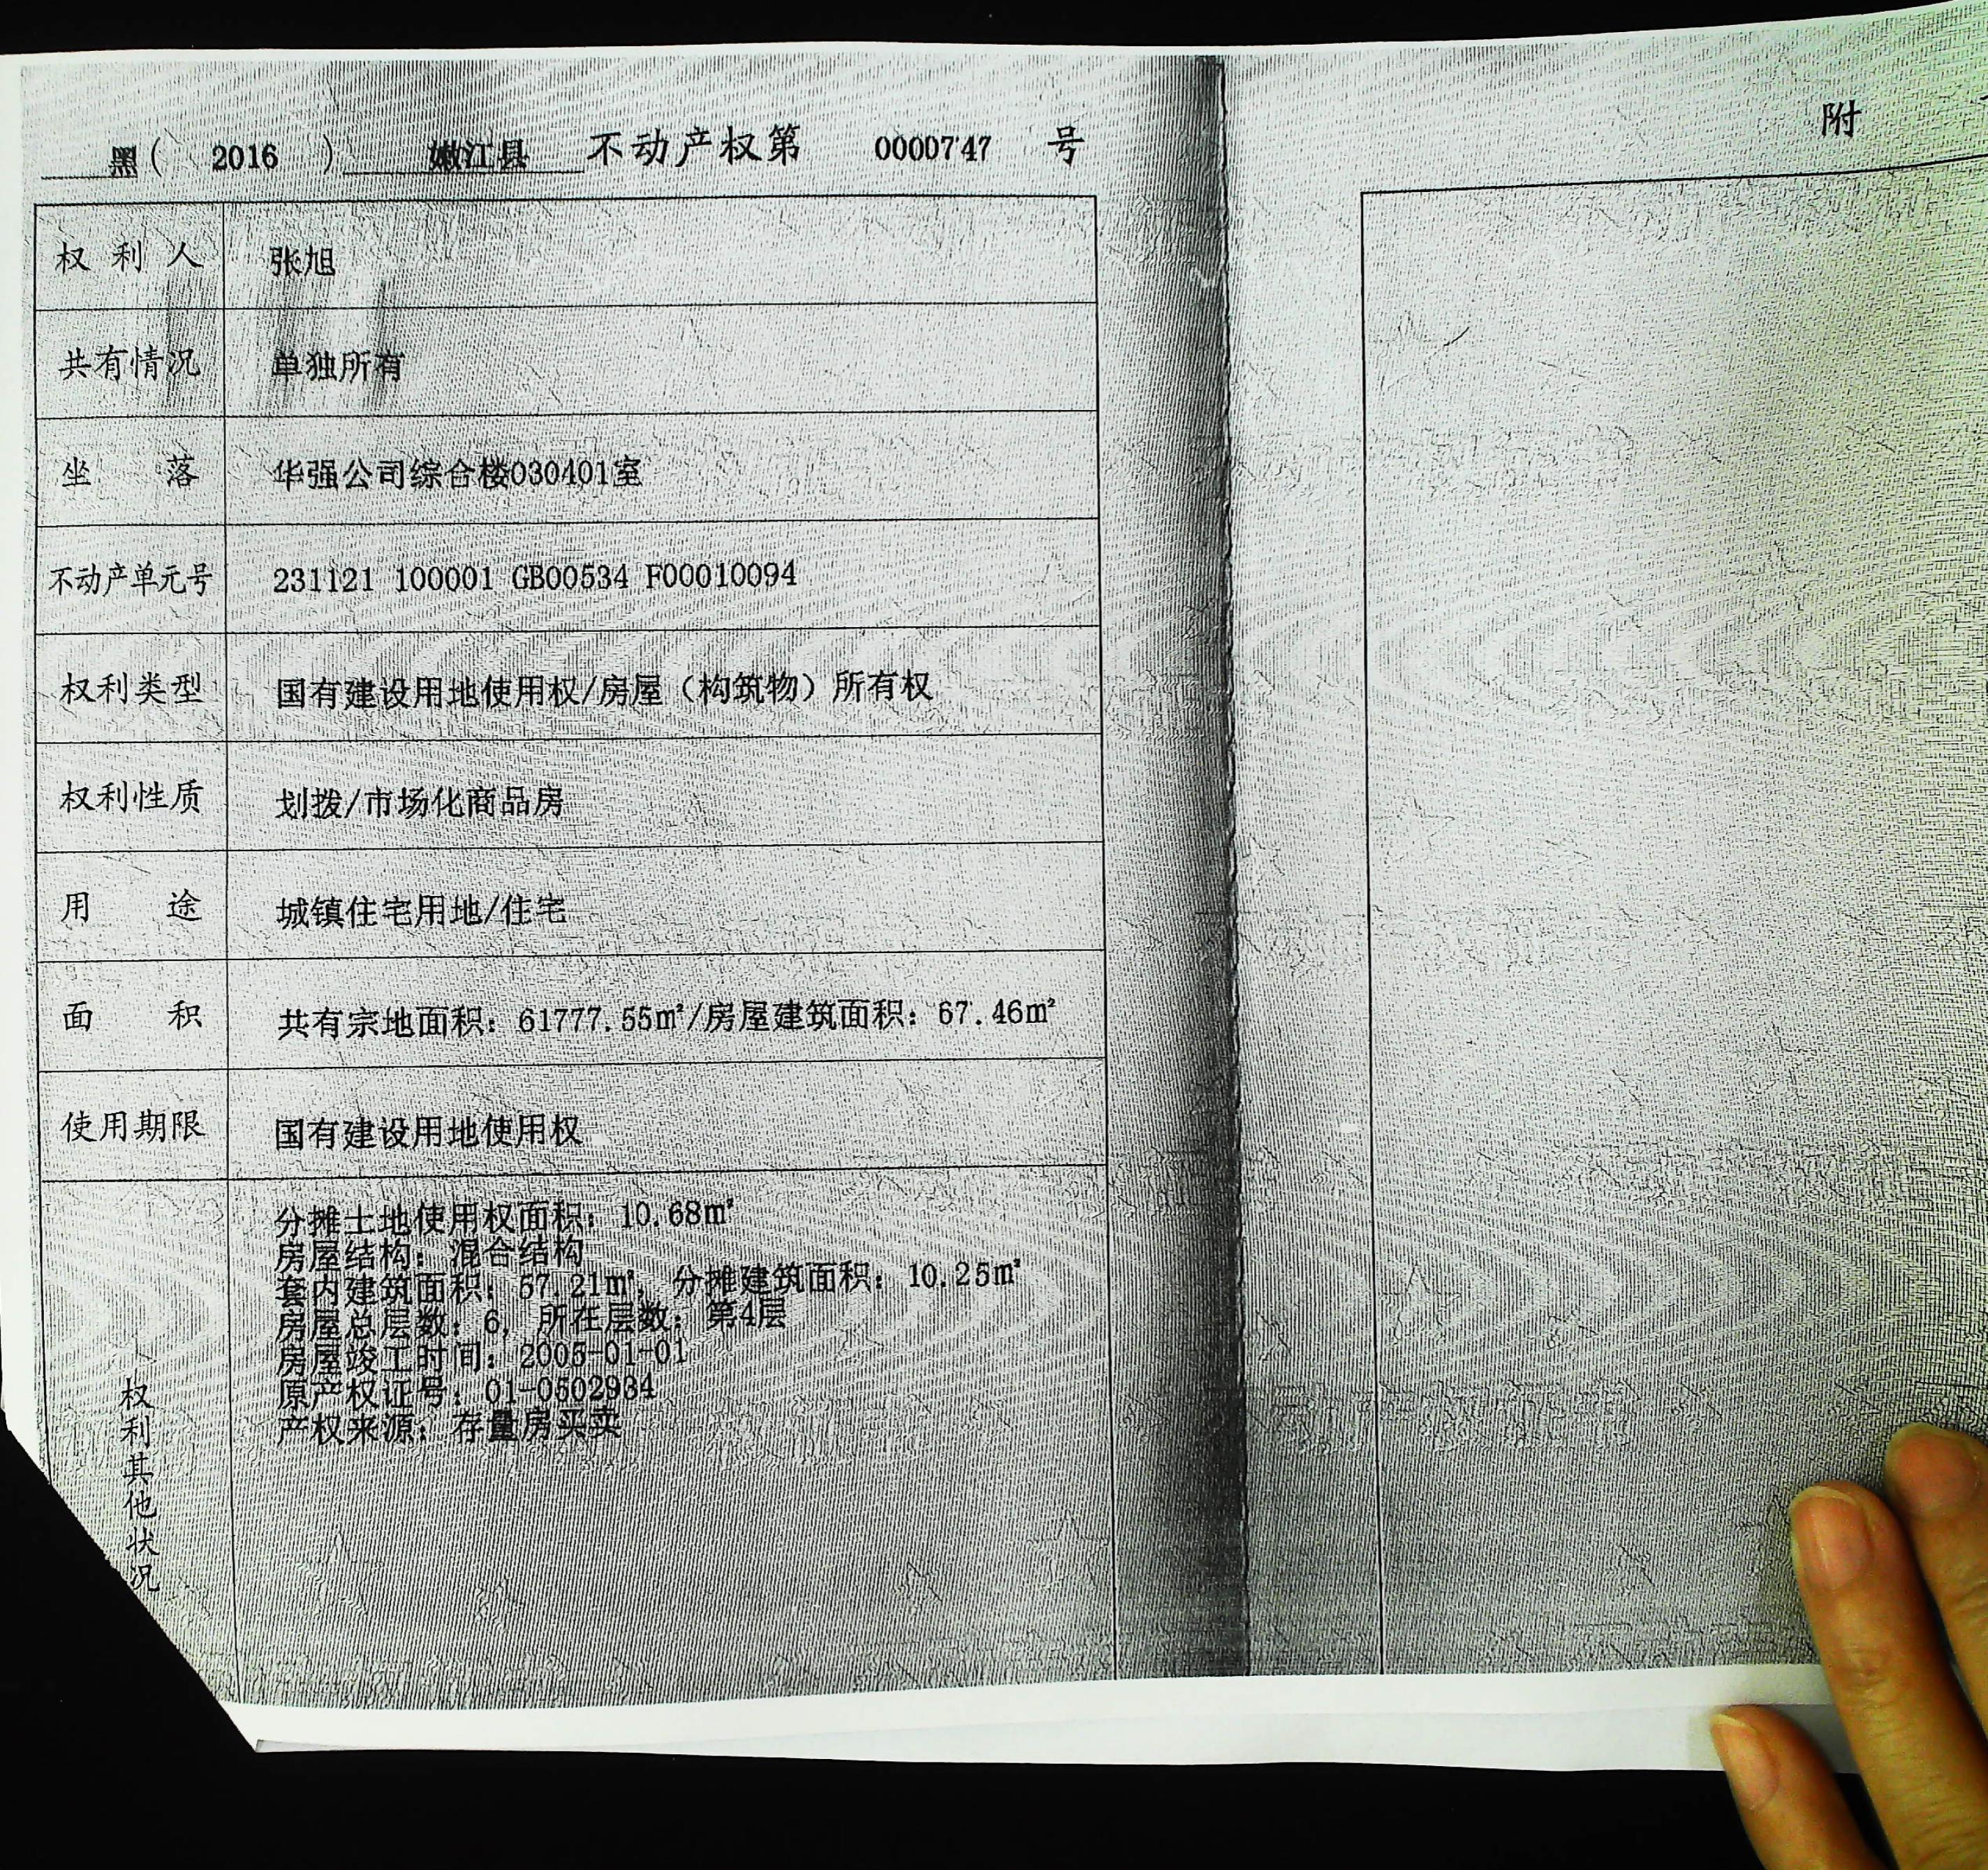 黑( 2016 ) 嫩江县 不动产权第 0000747 号
附
权利人 张旭
共有情况 单独所有
坐落 华强公司综合楼030401室
不动产单元号 231121 100001 GB00534 F00010094
权利类型 国有建设用地使用权/房屋（构筑物）所有权
权利性质 划拨/市场化商品房
用途 城镇住宅用地/住宅
面积 共有宗地面积：61777.55㎡/房屋建筑面积：67.46㎡
使用期限 国有建设用地使用权
权利其他状况
分摊土地使用权面积：10.68㎡
房屋结构：混合结构
套内建筑面积：57.21㎡，分摊建筑面积：10.25㎡
房屋总层数：6，所在层数：第4层
房屋竣工时间：2005-01-01
原产权证号：01-0502934
产权来源：存量房买卖